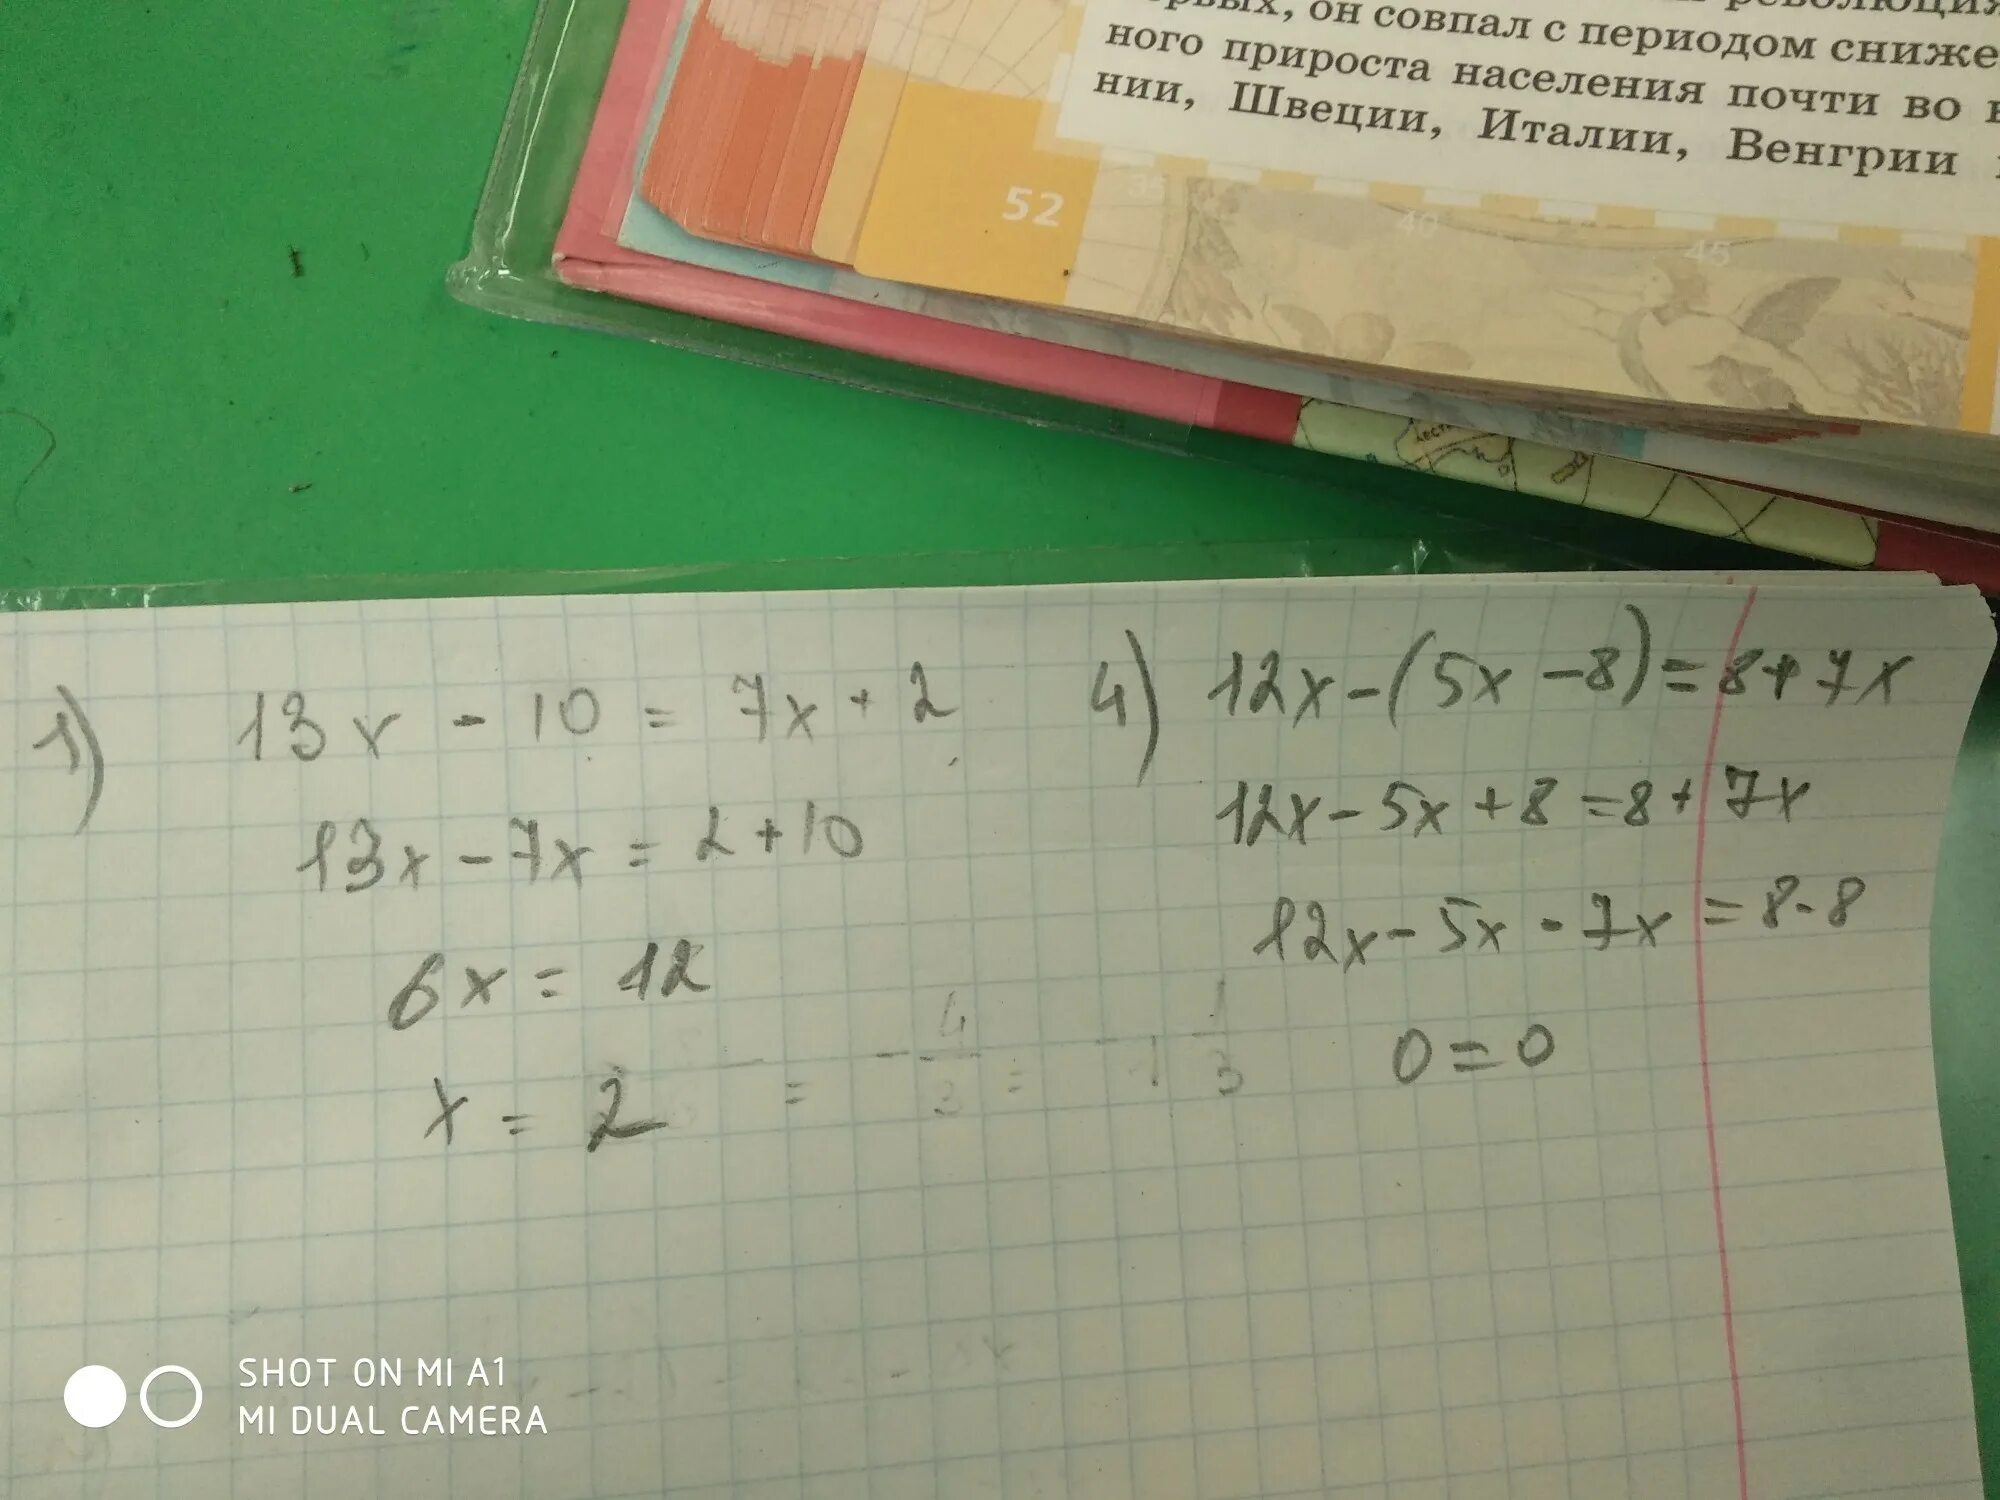 он совпал с периодом сниже
ного прироста населения почти во
нии, Швеции, Италии, Венгрии
52
35
40
45
1) 13x - 10 = 7x + 2
13x - 7x = 2 + 10
6x = 12
x = 2
= - 4/3 = - 1 1/3
4) 12x - (5x - 8) = 8 + 7x
12x - 5x + 8 = 8 + 7x
12x - 5x - 7x = 8 - 8
0 = 0
SHOT ON MI A1
MI DUAL CAMERA